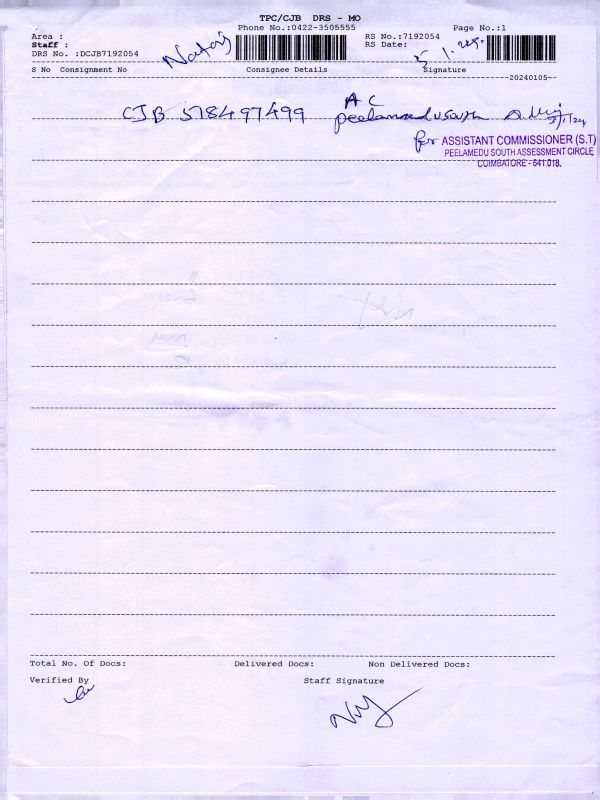 TPC/CJB DRS - MO
Phone No.:0422-3505555
Page No.:1
Area :
RS No.:7192054
Staff :
RS Date: 5/1/24
DRS No. :DCJB7192054
S No Consignment No Consignee Details Signature
20240105
CJB 578497499 A C Peelamedu South 5/1/24
for ASSISTANT COMMISSIONER (S.T)
PEELAMEDU SOUTH ASSESSMENT CIRCLE
COIMBATORE - 641 018.
Total No. Of Docs: Delivered Docs: Non Delivered Docs:
Verified By Staff Signature